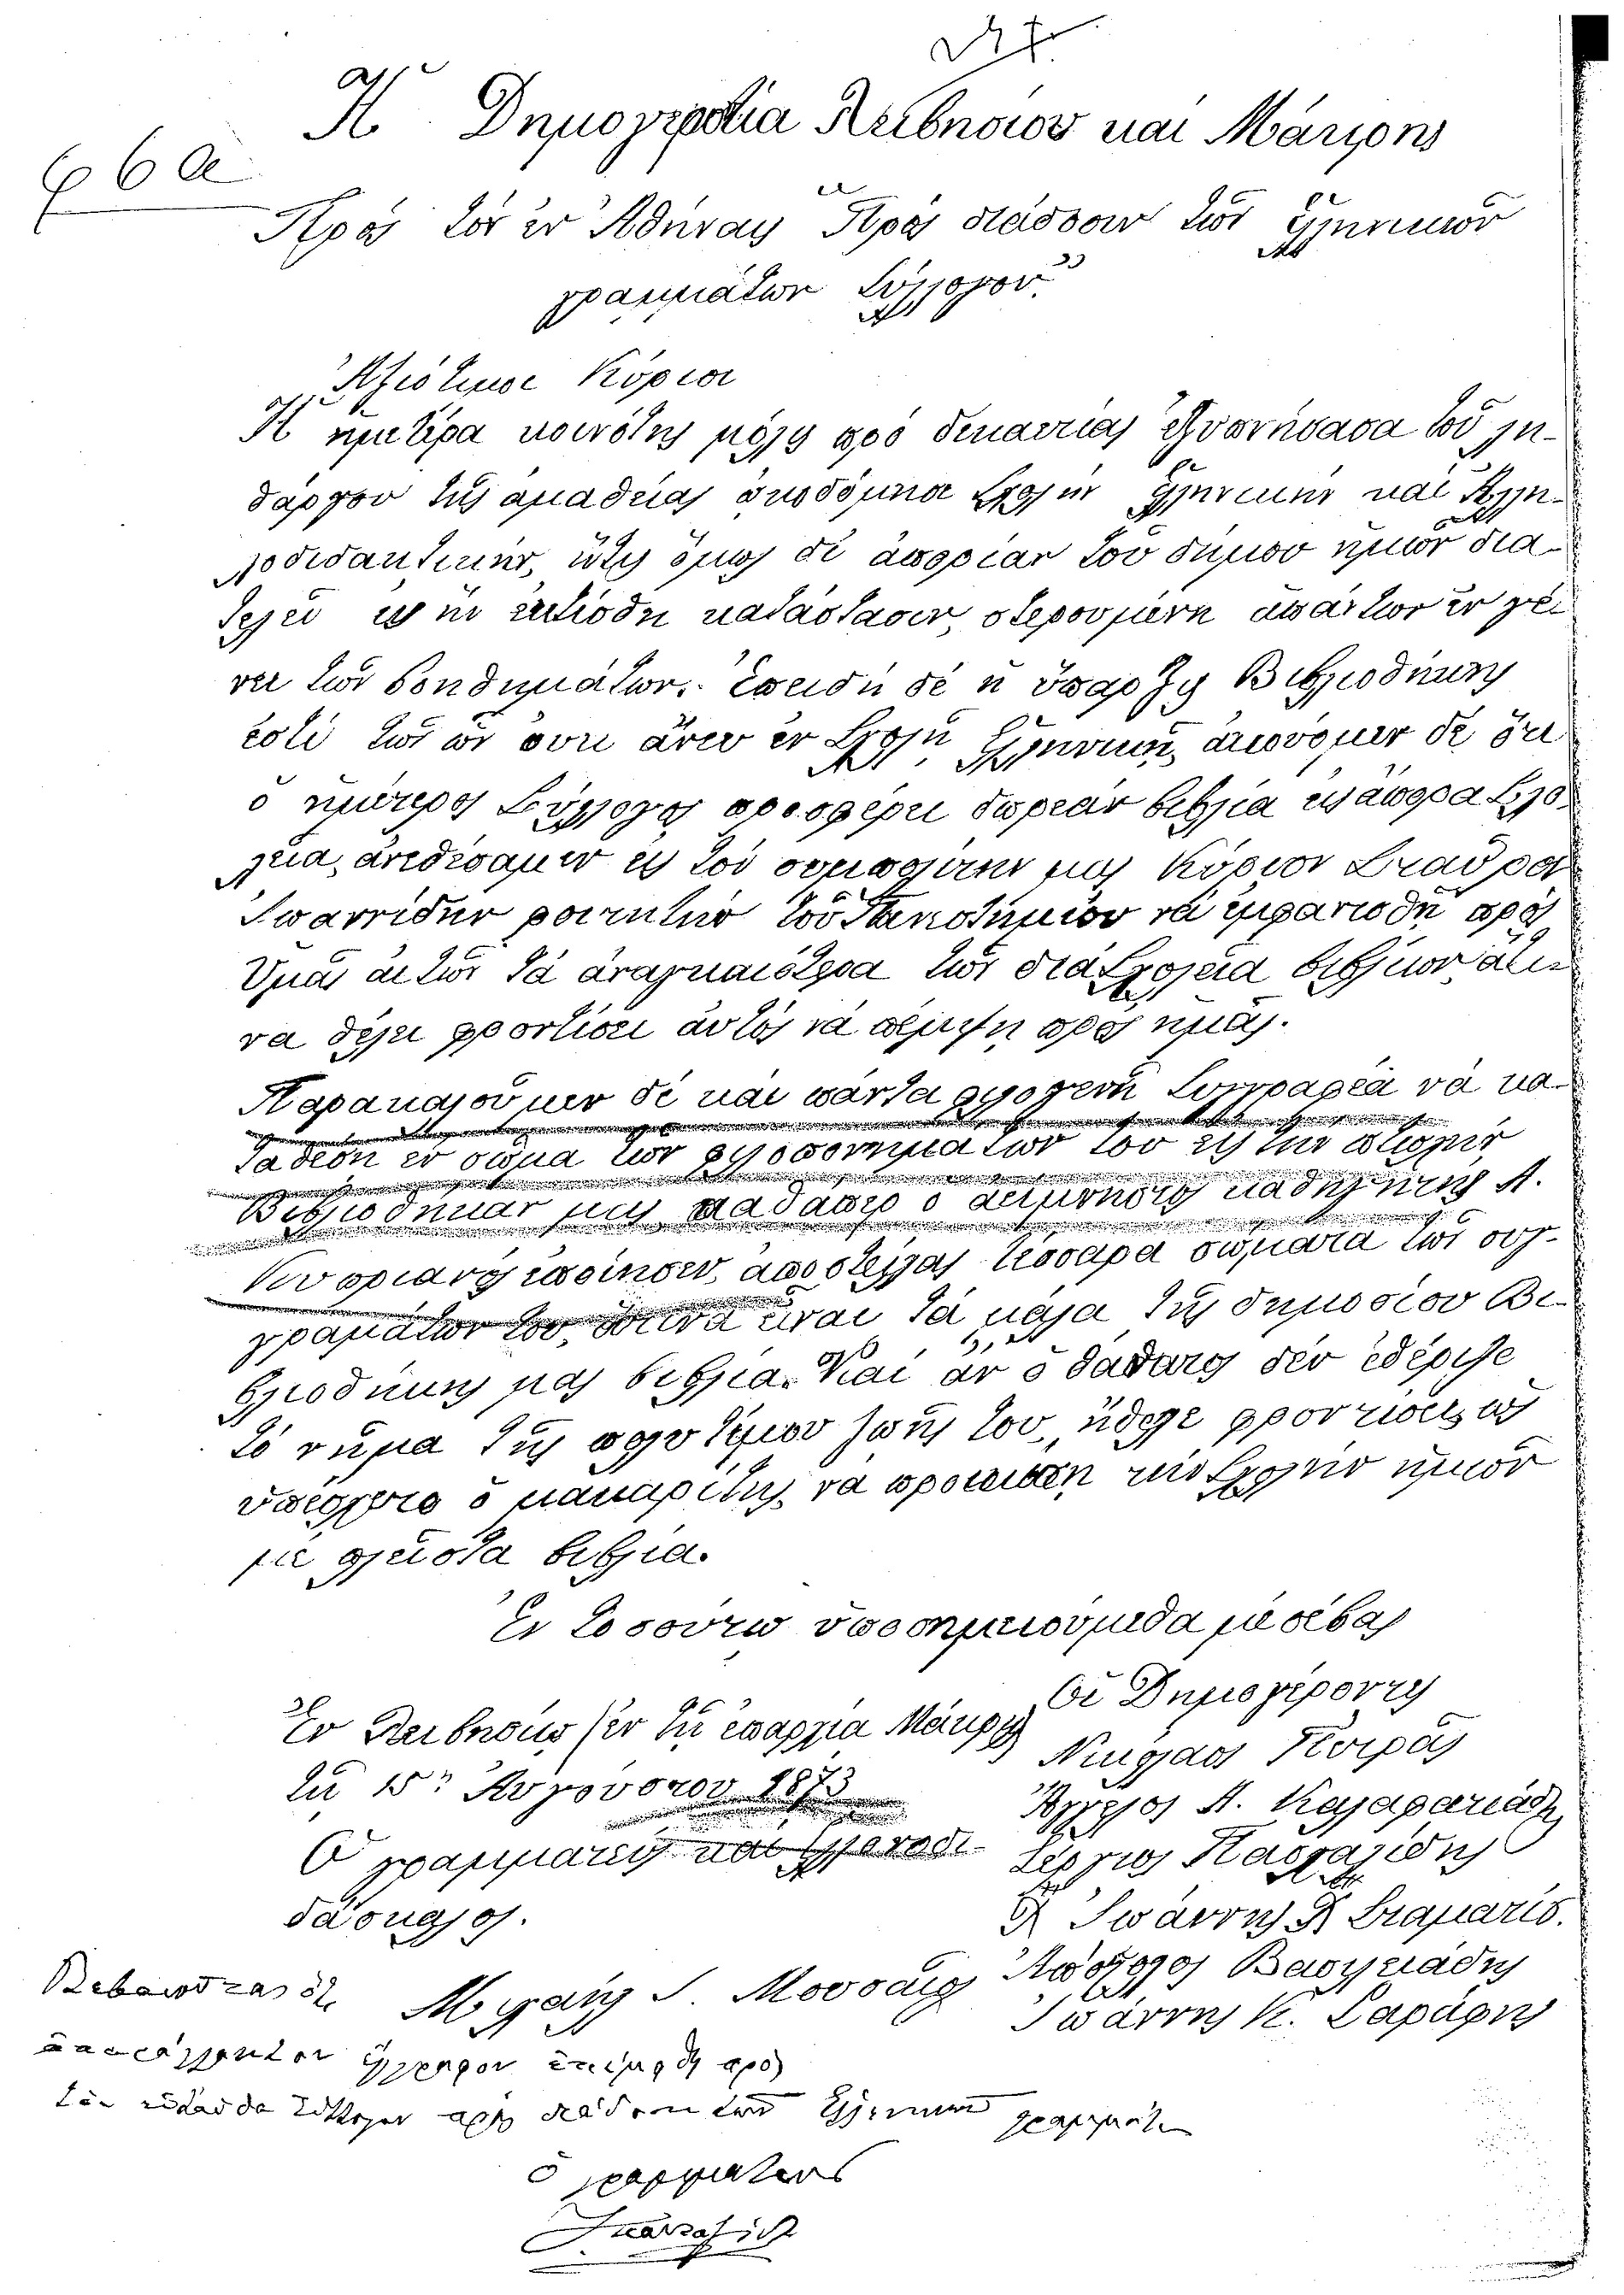 Ἡ Δημογεροντία Λειβησίου καὶ Μάκρης
66α
Πρὸς τὸν ἐν Ἀθήναις "Πρὸς διάδοσιν τῶν Ἑλληνικῶν
γραμμάτων Σύλλογον"
Ἀξιότιμοι Κύριοι
Ἡ ἡμετέρα κοινότης μόλις πρὸ δεκαετίας ἐξυπνήσασα τοῦ λη-
θάργου τῆς ἀμαθείας ᾠκοδόμησε Σχολὴν Ἑλληνικὴν καὶ Ἀλλη-
λοδιδακτικήν, ἥτις ὅμως δι' ἀπορίαν τοῦ δήμου ἡμῶν δια-
τελεῖ εἰς ἣν κατάστασιν, στερουμένη ἁπάντων ἐν γέ-
νει τῶν βοηθημάτων. Ἐπειδὴ δὲ ἡ ὕπαρξις Βιβλιοθήκης
ἐστὶ τῶν ὧν οὐκ ἄνευ ἐν Σχολῇ Ἑλληνικῇ, ἀκούομεν δὲ ὅτι
ὁ ὑμέτερος Σύλλογος προσφέρει δωρεὰν βιβλία εἰς ἄπορα Σχο-
λεῖα, ἀνεθέσαμεν εἰς τὸν συμπολίτην μας Κύριον Σταῦρον
Ἰωαννίδην φοιτητὴν τοῦ Πανεπιστημίου νὰ ἐμφανισθῇ πρὸς
Ὑμᾶς αἰτῶν τὰ ἀναγκαιότερα τῶν διὰ Σχολεῖα βιβλίων ἅτι-
να θέλει φροντίσει αὐτὸς νὰ πέμψῃ πρὸς ἡμᾶς.
Παρακαλοῦμεν δὲ καὶ πάντα φιλογενῆ Συγγραφέα νὰ κα-
ταθέσῃ ἓν σῶμα τῶν φιλοπονημάτων του εἰς τὴν πτωχὴν
Βιβλιοθήκην μας καθάπερ ὁ ἀείμνηστος καθηγητὴς Α.
Κυπριανὸς ἐποίησεν, ἀποστείλας τέσσαρα σώματα τῶν συγ-
γραμμάτων του, ἅτινα εἶναι τὰ μόνα τῆς δημοσίου Βι-
βλιοθήκης μας βιβλία. Καὶ ἂν ὁ θάνατος δὲν ἐθέριζε
τὸ νῆμα τῆς πολυτίμου ζωῆς του, ἤθελε φροντίσει, ὡς
ὑπέσχετο ὁ μακαρίτης, νὰ προικίσῃ τὴν Σχολὴν ἡμῶν
μὲ πλεῖστα βιβλία.
Ἐν τοσούτῳ ὑποσημειούμεθα μὲ σέβας
Ἐν Λειβησίῳ (ἐν τῇ ἐπαρχίᾳ Μάκρης)
τῇ 15ῃ Αὐγούστου 1873
Οἱ Δημογέροντες
Νικόλαος Πουρᾶς
Ἄγγελος Α. Καλαφατιάδης
Γεώργιος Πασχαλίδης
Χ Ἰωάννης Χ Σταματίο.
Ἀπόστολος Βασιλειάδης
Ἰωάννης Κ. Σαράφης
Ὁ γραμματεὺς καὶ Ἑλληνοδι-
δάσκαλος.
Μιχαὴλ Ι. Μουσαῖος
Βεβαιοῦται ὅτι
ἔγγραφον ἐπέμφθη πρὸς
τὸν ἐνταῦθα Σύλλογον πρὸς διάδοσιν τῶν Ἑλληνικῶν γραμμάτων
ὁ γραμματεὺς